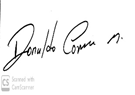 Donaldo Correa M.
CS Scanned with
CamScanner